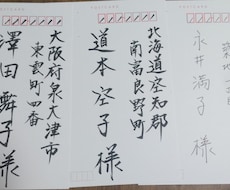 永井満子様
北海道空知郡
南富良野町
道本空子様
大阪府泉大津市
東雲町四番
澤田舞子様